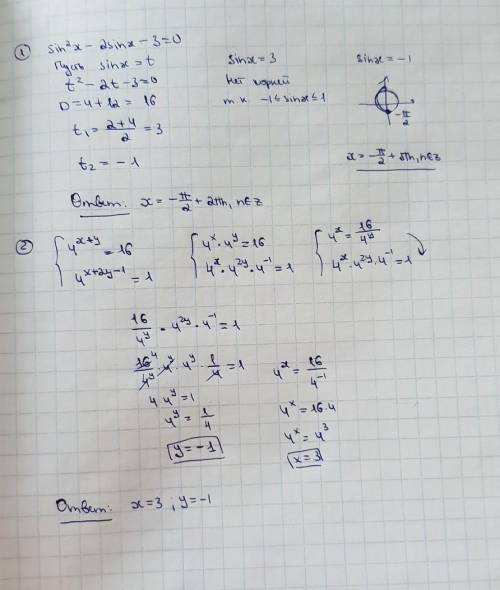 ① sin²x - 2sinx - 3 = 0
Пусть sinx = t
t² - 2t - 3 = 0
D = 4 + 12 = 16
t₁ = (2+4)/2 = 3
t₂ = -1
sinx = 3
Нет корней
т.к -1 ≤ sinx ≤ 1
sinx = -1
-π/2
x = -π/2 + 2πn, n∈z
Ответ: x = -π/2 + 2πn, n∈z
② { 4^(x+y) = 16
4^(x+2y-1) = 1
{ 4^x · 4^y = 16
4^x · 4^(2y) · 4^(-1) = 1
{ 4^x = 16/4^y
4^x · 4^(2y) · 4^(-1) = 1
16/4^y · 4^(2y) · 4^(-1) = 1
16⁴/4^y · 4^y · 4^y · 1/4 = 1
4 · 4^y = 1
4^y = 1/4
y = -1
4^x = 16/4^(-1)
4^x = 16 · 4
4^x = 4³
x = 3
Ответ: x = 3 ; y = -1